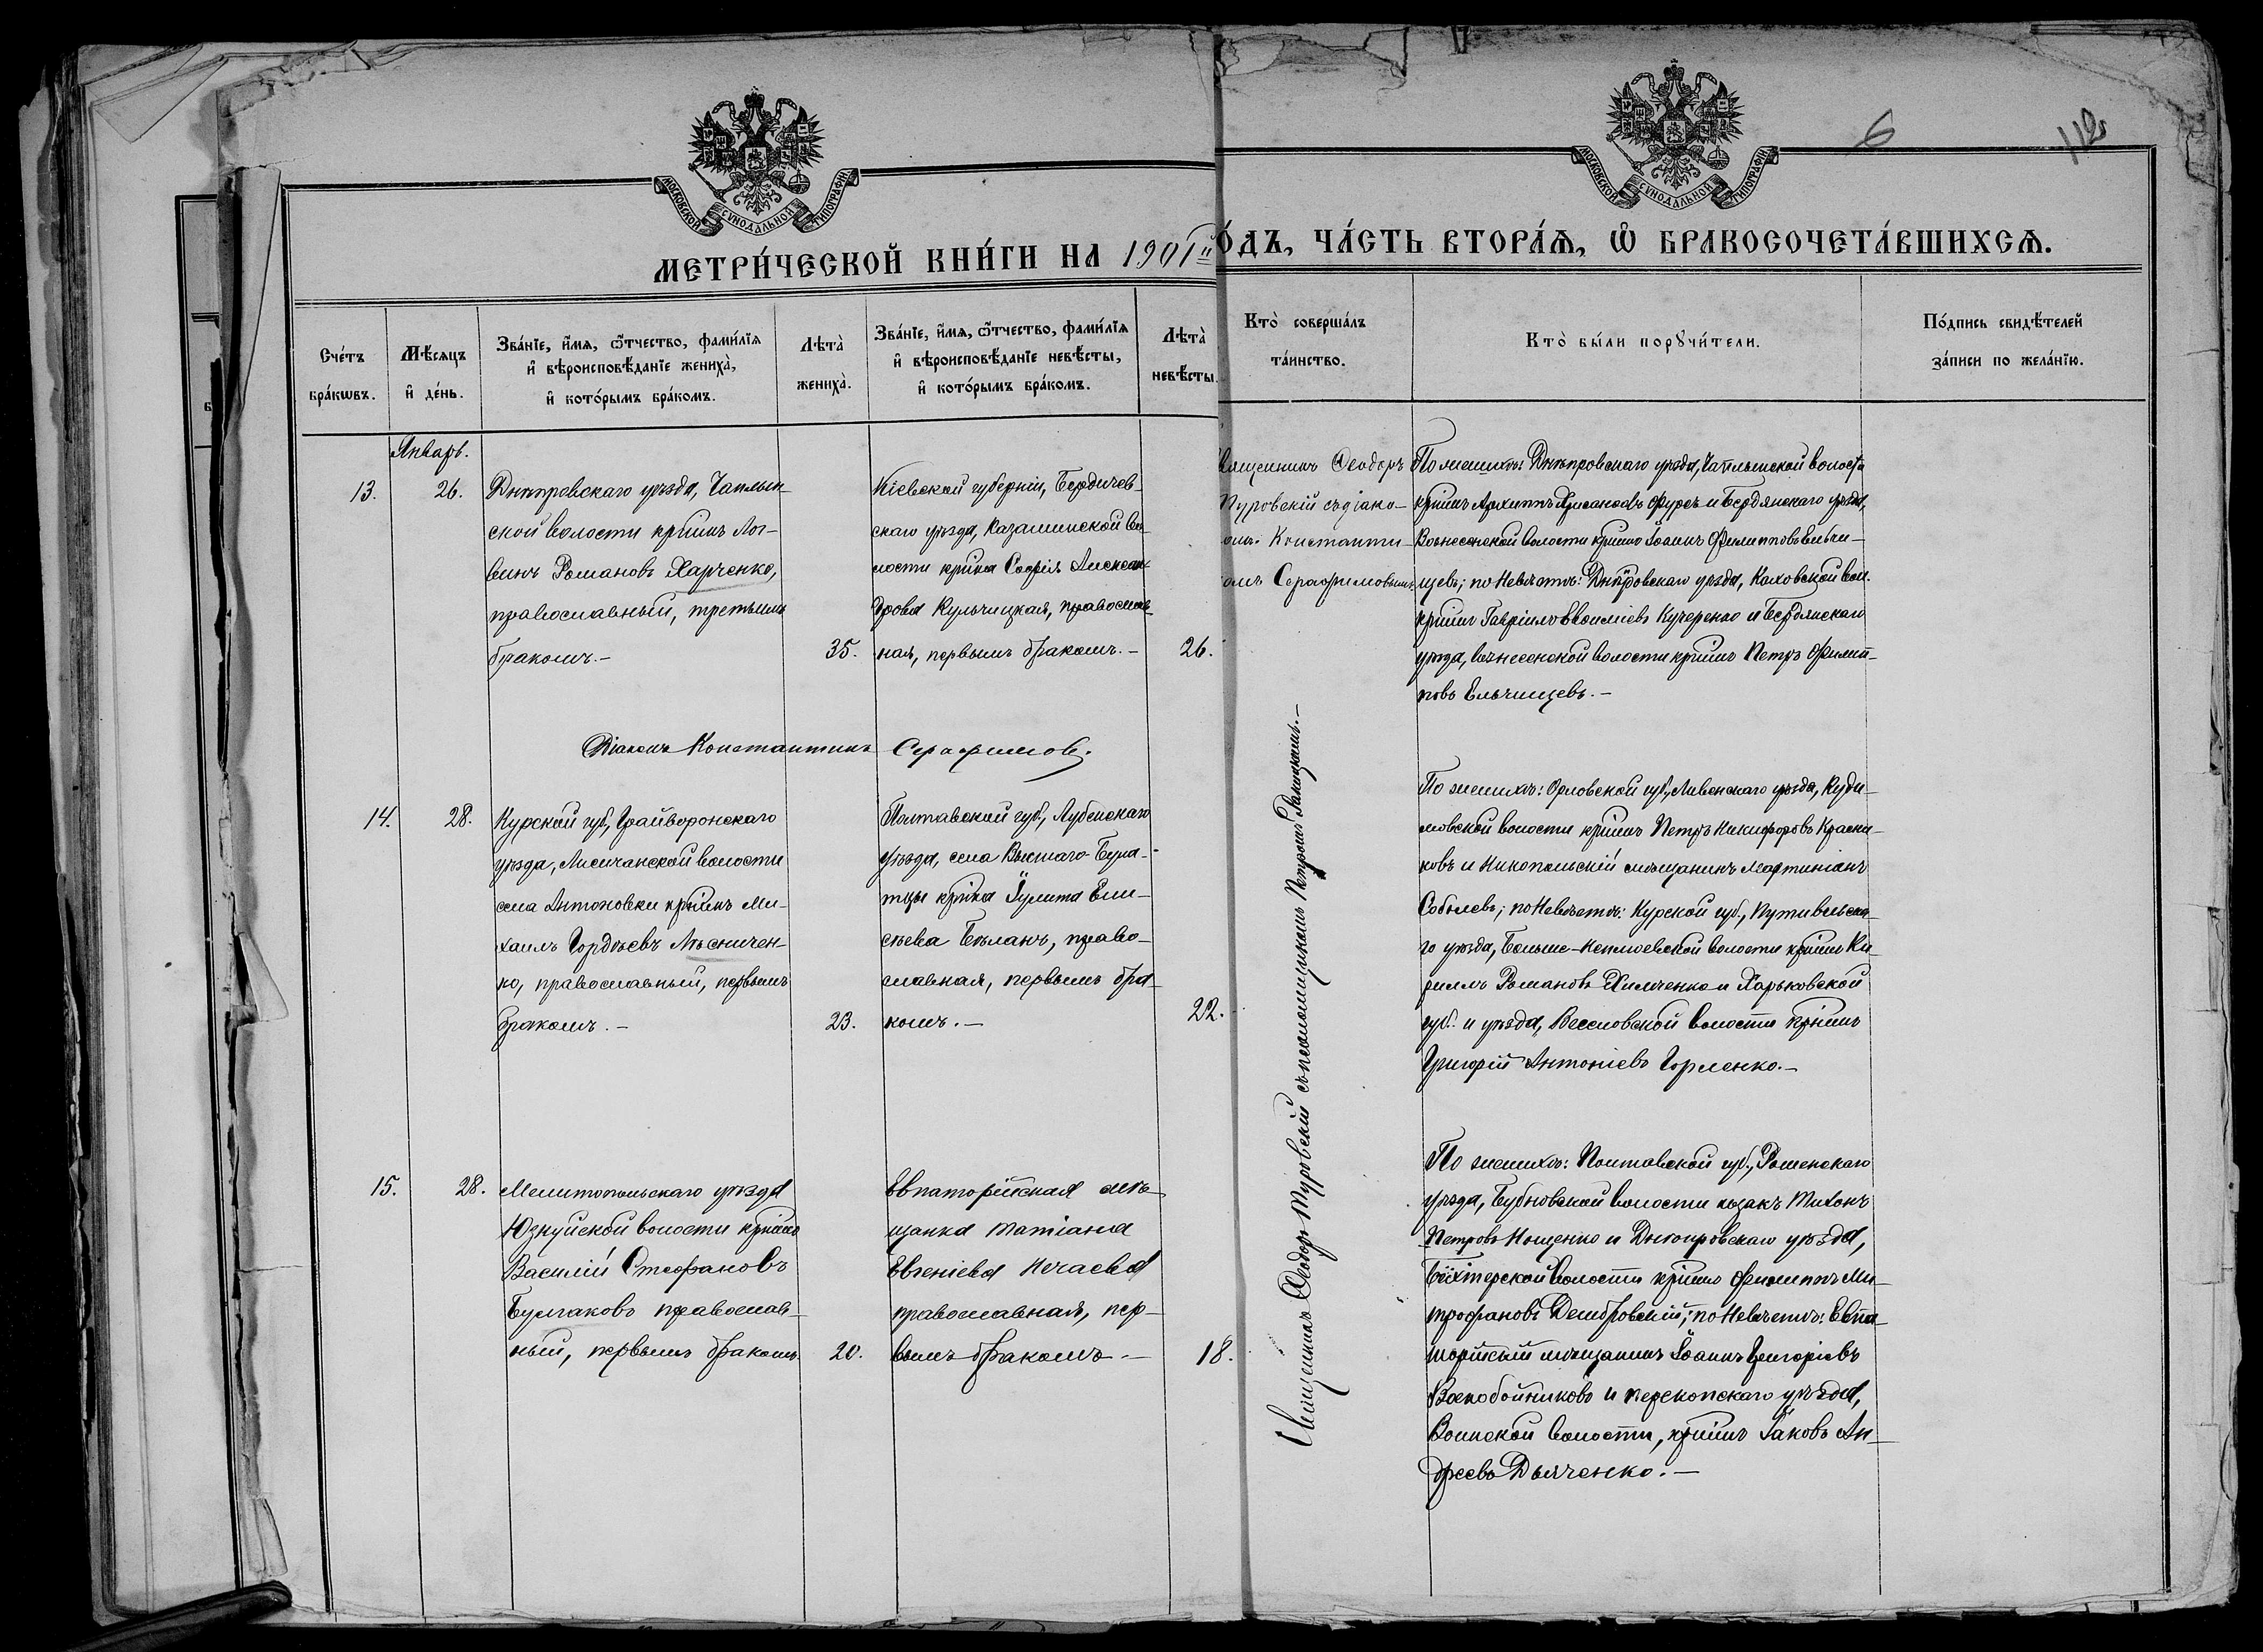 6
112
МОСКОВСКОЙ СѴНОДАЛЬНОЙ ТИПОГРАФІИ
МОСКОВСКОЙ СѴНОДАЛЬНОЙ ТИПОГРАФІИ
МЕТРИ́ЧЕСКОЙ КНИ́ГИ НА 1901й
О́ДЪ, ЧА́СТЬ ВТОРА́Ѧ, Ѽ БРАКОСОЧЕТА́ВШИХСѦ.
Сче́тъ
бра́кѡвъ.
Мѣ́сяцъ
и҆ де́нь.
Зва́нїе, и҆́мѧ, ѻ҆́тчество, фами́лїѧ
и҆ вѣроисповѣ́данїе жениха̀,
и҆ кото́рымъ бра́комъ.
Лѣта̀
жениха̀.
Зва́нїе, и҆́мѧ, ѻ҆́тчество, фами́лїѧ
и҆ вѣроисповѣ́данїе невѣ́сты,
и҆ кото́рымъ бра́комъ.
Лѣта̀
невѣ́сты.
Кто̀ соверша́лъ
та́инство.
Кто̀ бы́ли порꙋчи́тели.
По́дпись свидѣ́телей
за́писи по жела́нїю.
Январь.
13.
26.
Днѣпровскаго уѣзда, Чаплын-
ской волости крнинъ Лог-
винъ Романовъ Харченко,
православный, третьимъ
бракомъ.-
35.
Кіевской губерніи, Бердичев-
скаго уѣзда, Казатинской во-
лости крнка Софія Алексан-
дрова Кульчицкая, православ-
ная, первымъ бракомъ.-
26.
вященникъ Ѳеодоръ
Туровскій съ діако-
омъ Константи-
омъ Серафимовымъ.
По женихѣ: Днѣпровскаго уѣзда, Чаплынской волости
крнинъ Архиппъ Хрисанѳовъ Фурсъ и Бердянскаго уѣзда,
Вознесенской волости крнинъ Іоаннъ Филипповъ Ельчи-
щевъ; по невѣстѣ: Днѣпровскаго уѣзда, Каховской вол.
крнинъ Гавріилъ Васильевъ Кучеренко и Бердянскаго
уѣзда, Вознесенской волости крнинъ Петръ Филип-
повъ Ельчищевъ.-
Діаконъ Константинъ Серафимовъ.
14.
28.
Курской губ., Грайворонскаго
уѣзда, Лисичанской волости
села Антоновки крнинъ Ми-
хаилъ Гордѣевъ Мѣсничен-
ко, православный, первымъ
бракомъ.-
23.
Полтавской губ., Лубенскаго
уѣзда, села Высшаго-Була-
тцы крнка Іулита Ели-
сѣева Бѣланъ, право-
славная, первымъ бра-
комъ.-
22.
По женихѣ: Орловской губ., Ливенскаго уѣзда, Куди-
новской волости крнинъ Петръ Никифоровъ Красни-
ковъ и Никопольскій мѣщанинъ Мартиніанъ
Соболевъ; по невѣстѣ: Курской губ., Путивльска-
го уѣзда, Больше-Неплюевской волости крнинъ Ки-
риллъ Романовъ Химченко и Харьковской
губ. и уѣзда, Веселовской волости крнинъ
Григорій Антоніевъ Горленко.-
Священникъ Ѳеодоръ Туровскій съ псаломщикомъ Петромъ
15.
28.
Мелитопольскаго уѣзда
Юзкуйской волости крнинъ
Василій Стефановъ
Булгаковъ православ-
ный, первымъ бракомъ.
20.
Евпаторійская мѣ-
щанка Татіана
Евгеніева Нечаева
православная, пер-
вымъ бракомъ.-
18.
По женихѣ: Полтавской губ., Роменскаго
уѣзда, Бубновской волости козакъ Тихонъ
Петровъ Нощенко и Днѣпровскаго уѣзда,
Бехтерской волости крнинъ Филиппъ Ми-
трофановъ Домбровскій; по невѣстѣ: Евпа-
торійскій мѣщанинъ Іоаннъ Григоріевъ
Воскобойниковъ и Перекопскаго уѣзда,
Воинской волости, крнинъ Іаковъ Ан-
дреевъ Дьяченко.-